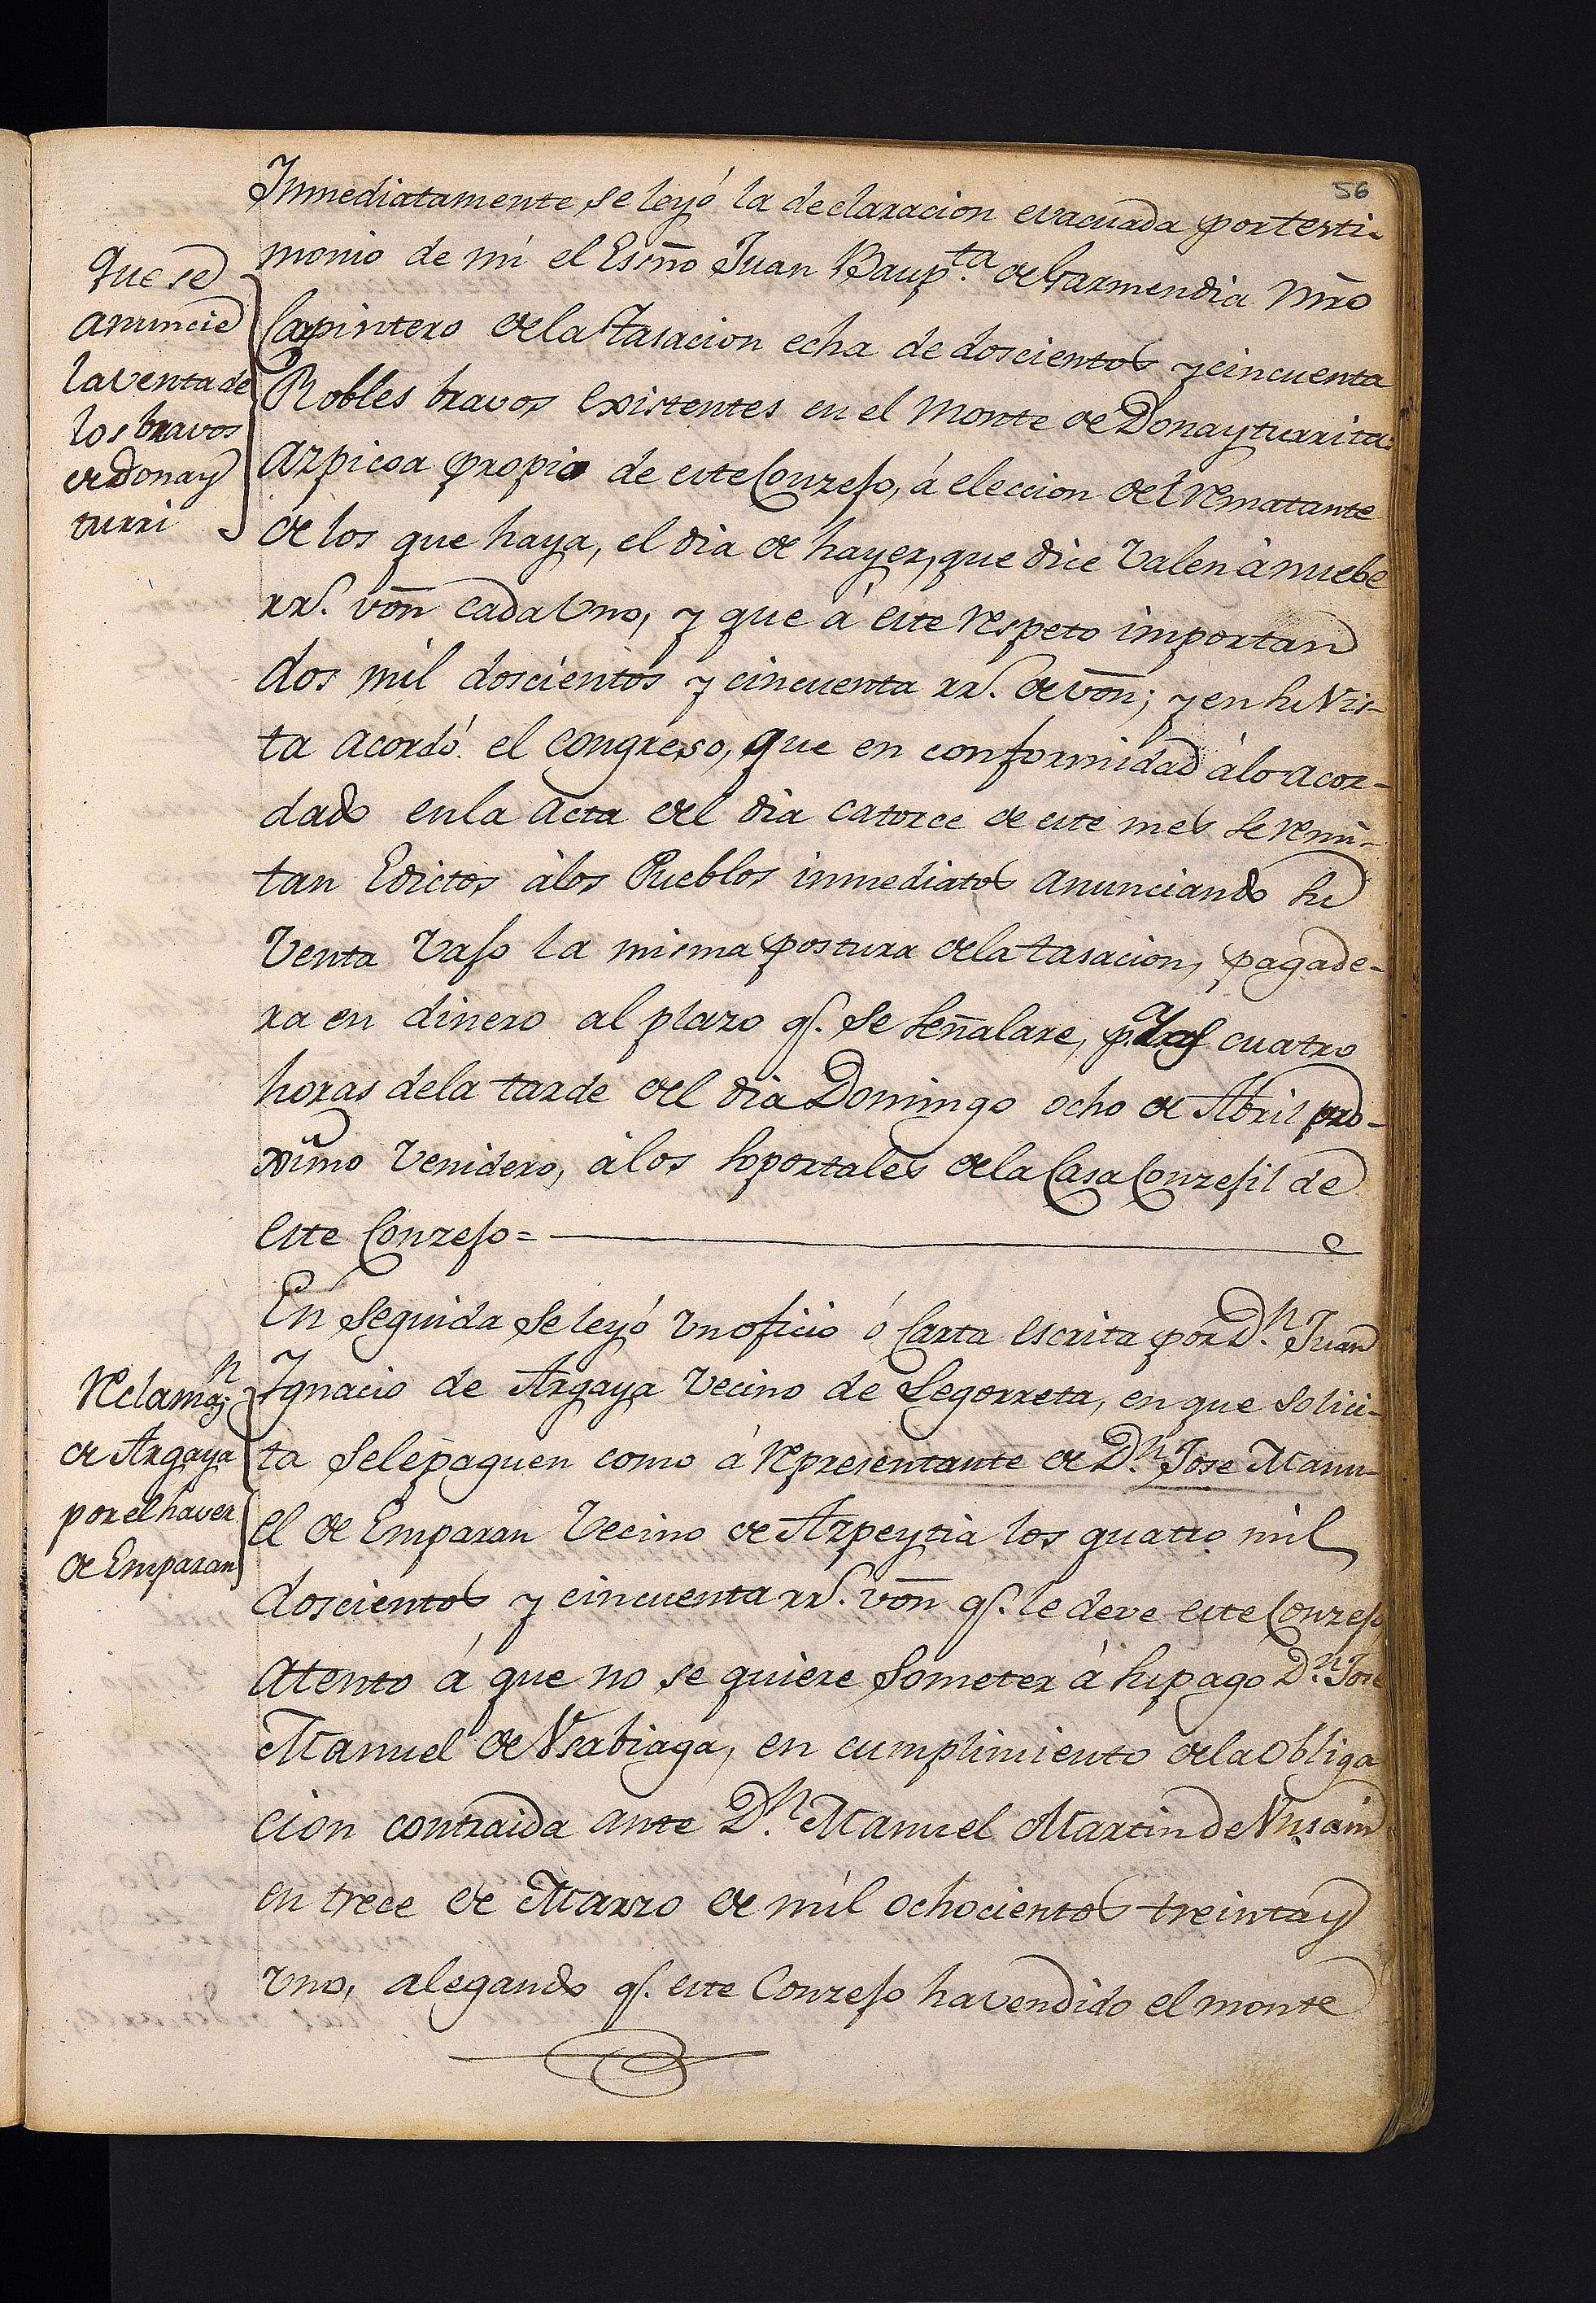 56
Inmediatamente se leyó la declaracion evacuada por testi-
monio de mi el Esṃno Juan Baupta. de Garmendia Mr̃o
Carpintero de la tasacion echa de doscientos y cincuenta
Robles bravos existentes en el Monte de Donayturrita
Azpicoa propio de este Conzejo, á eleccion del rematante
de los que haya, el dia de hayer, que dice valen à nuebe
rrs. vōn cada uno, y que á este respeto importan
dos mil doscientos y cincuenta rrs. de vōn; y en su vis-
ta acordó el congreso, que en conformidad à lo acor-
dado en la acta del dia catorce de este mes se remi-
tan Edictos à los Pueblos inmediatos anunciando su
Venta vajo la misma postura de la tasacion, pagade-
ra en dinero al plazo q. se señalare, pa. las cuatro
horas de la tarde del dia Domingo ocho de Abril pro-
ximo venidero, á los soportales de la Casa Conzejil de
este Conzejo =
Que se
anuncie
la venta de
los bravos
de Donay
turri
En seguida se leyó un oficio ó Carta escrita por Dn. Juan
Ignacio de Argaya vecino de Legorreta, en que solici-
ta se le paguen como á representante de Dn. Jose Manu-
el de Emparan vecino de Azpeytia los quatro mil
doscientos y cincuenta rrs. vōn q. le deve este Conzejo,
atento á que no se quiere someter à su pago Dn. Jose
Manuel de Usabiaga, en cumplimiento de la obliga
cion contraida ante Dn. Manuel Martin de
en trece de Marzo de mil ochocientos treinta y
uno, alegando q. este Conzejo ha vendido el monte
Reclamon.
de Argaya
por el haver
de Emparan